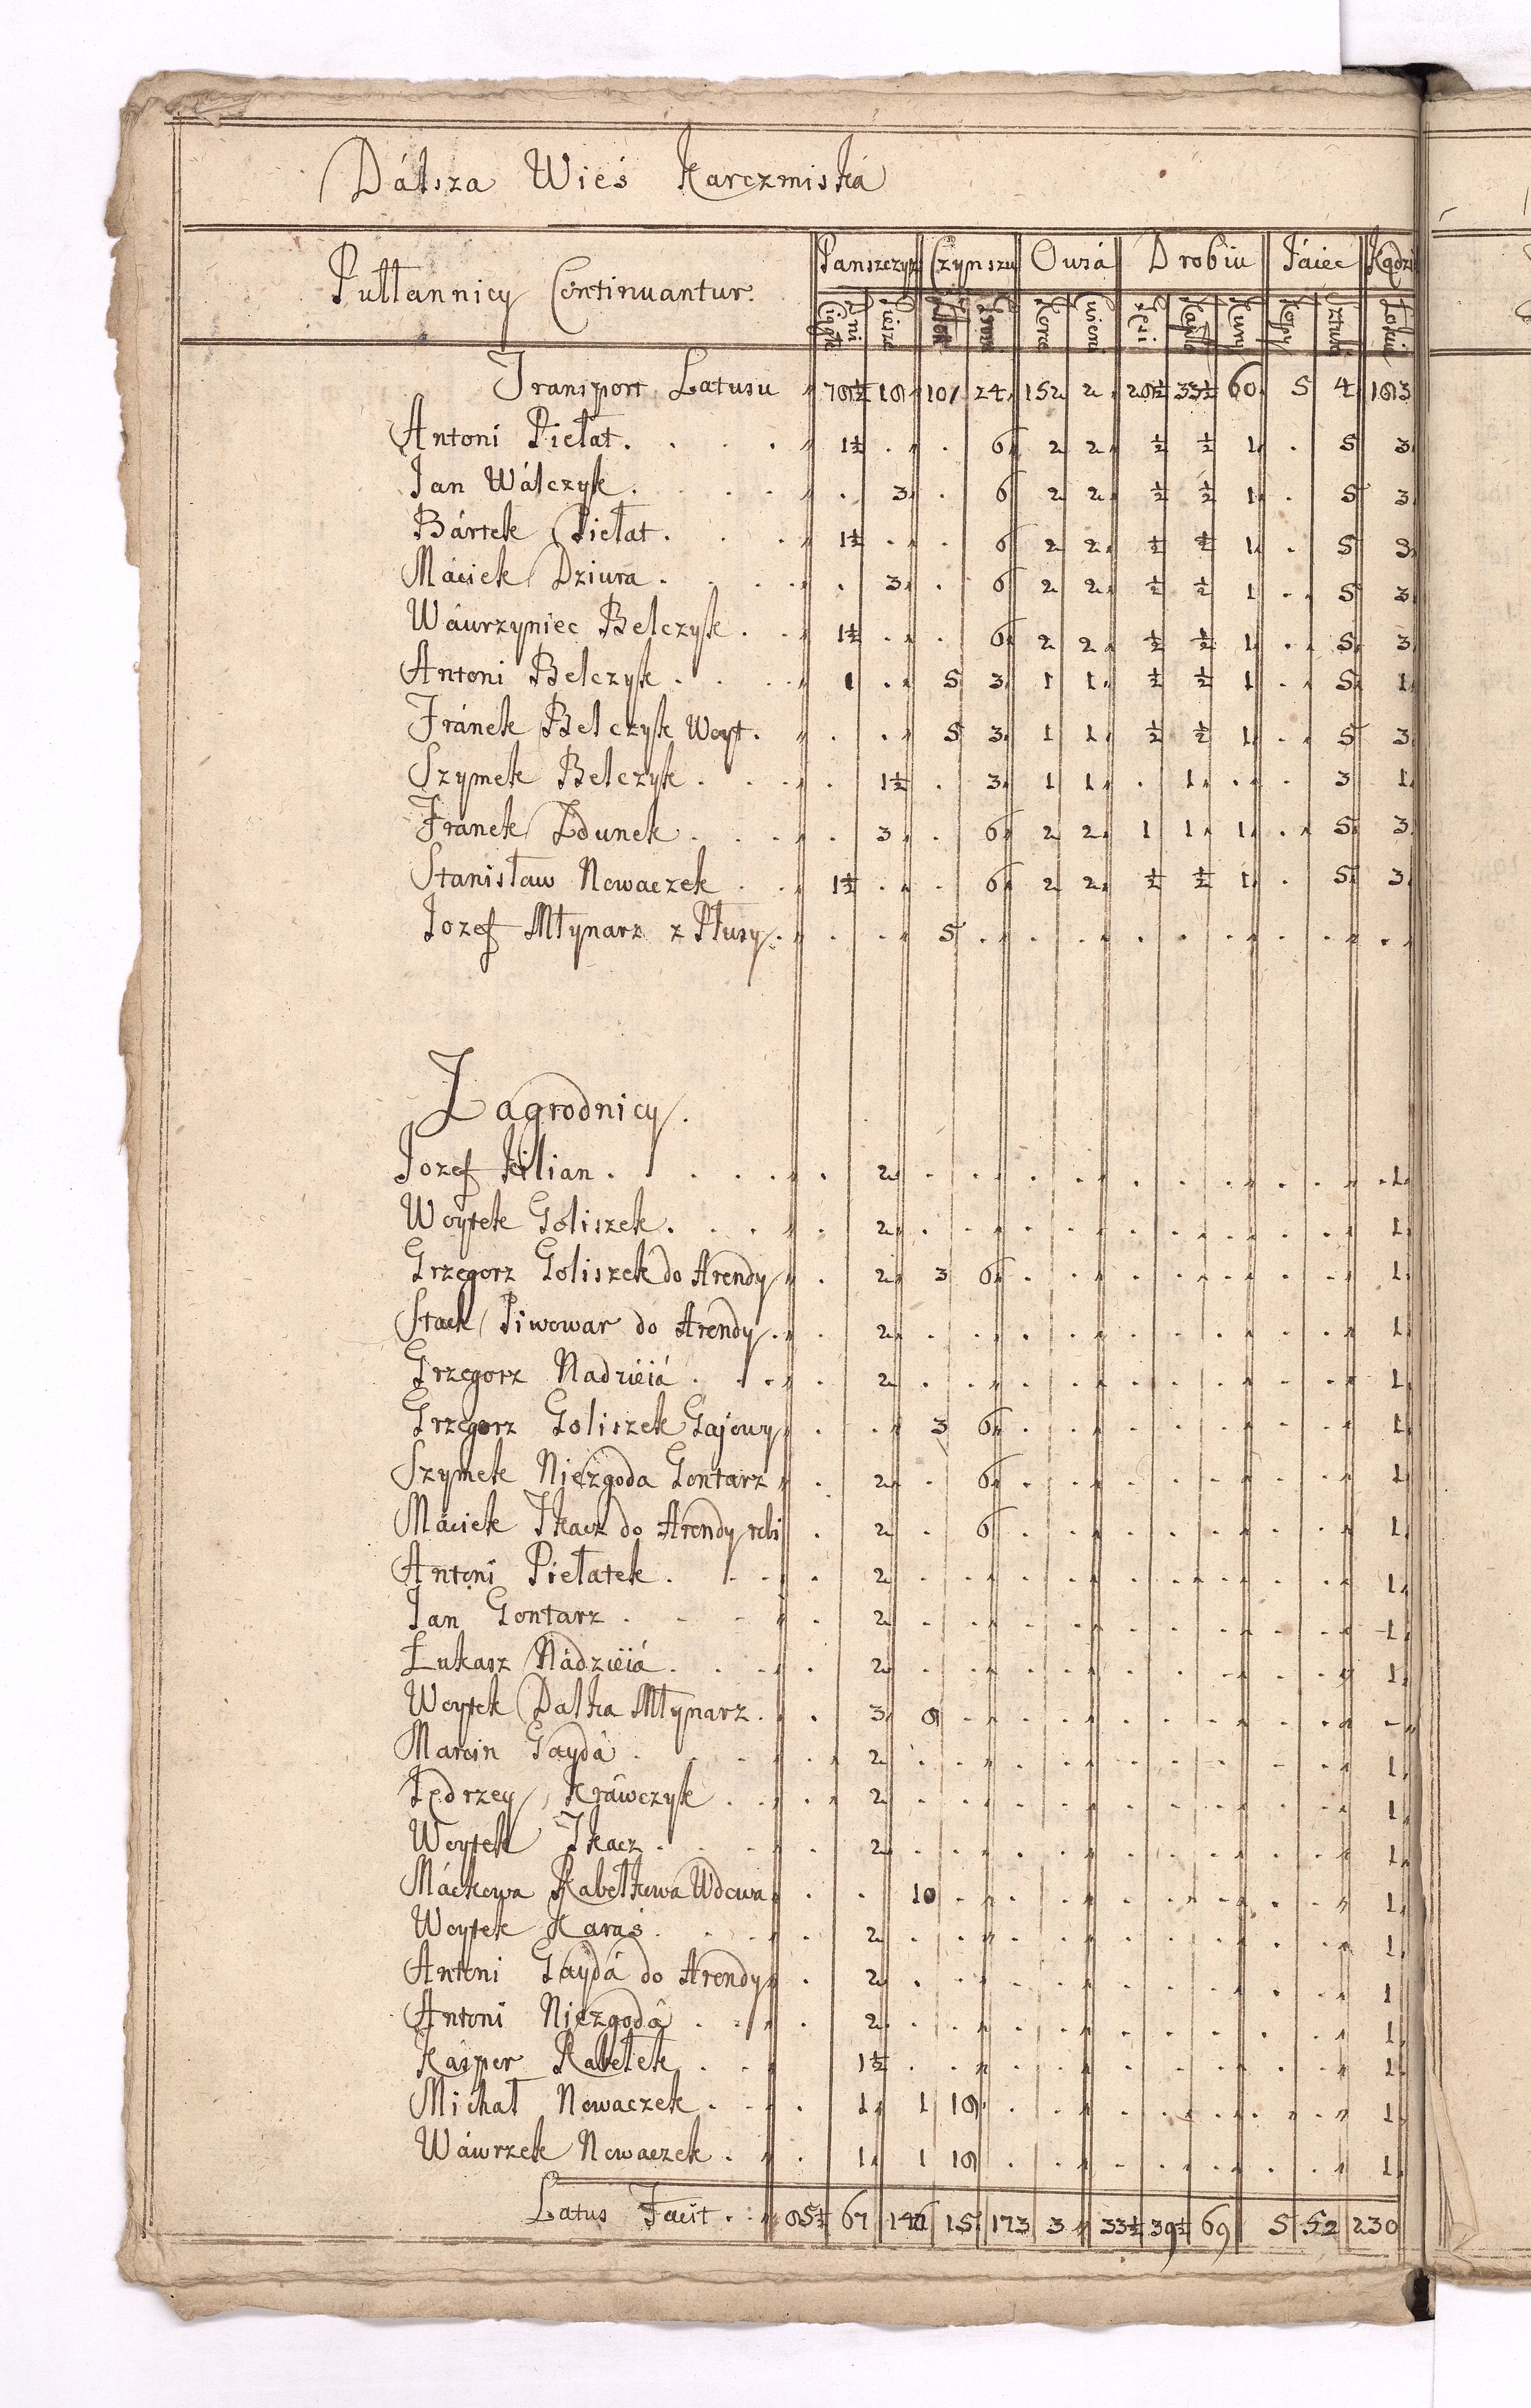 Dálsza Wieś Karczmiská
Pułłannicy Continuantur.
Panszczyz Czynszu Owsá Drobiu Jáiec Kądzi
Dni Ciągłe Piesze Złote Korce Gęsi Kapło Kury Kopy Sztuki Łokcie
Transport Latusu 101 24 152 2 33½ 60 5 4
Antoni Piełat. 1½ . . 6 2 2 ½ ½ 1 . 5 3
Jan Wálczyk. . 3 . 6 2 2 ½ ½ 1 . 5 3
Bártek Piełat. 1½ . . 6 2 2 ½ ½ 1 . 5 3
Máciek Dziura. . 3 . 6 2 2 ½ ½ 1 . 5 3
Wáwrzyniec Belczyk. 1½ . . 6 2 2 ½ ½ 1 . 5 3
Antoni Belczyk. 1 . 5 3 1 1 ½ ½ 1 . 5 1
Fránek Belczyk Woyt. . . 5 3 1 1 ½ ½ 1 . 5 3
Szymek Belczyk. . 1½ . 3 1 1 . 1 . . 3 1
Franek Zdunek. . 3 . 6 2 2 1 1 1 . 5 3
Stanisław Nowaczek. 1½ . . 6 2 2 ½ ½ 1 . 5 3
Jozef Młynarz z Płusy. . . 5 . . . . . . . . .
Zagrodnicy.
Jozef Kilian. . 2 . . . . . . . . . 1
Woytek Goliszek. . 2 . . . . . . . . . 1
Grzegorz Goliszek do Arendy . 2 3 6 . . . . . . . 1
Stach Piwowar do Arendy. . 2 . . . . . . . . . 1
Grzegorz Nadzieiá. . 2 . . . . . . . . . 1
Grzegorz Goliszek Gajowy . . 3 6 . . . . . . . 1
Szymek Niezgoda Gontarz . 2 . 6 . . . . . . . 1
Máciek Tkacz do Arendy robi . 2 . 6 . . . . . . . 1
Antoni Piełatek. . 2 . . . . . . . . . 1
Jan Gontarz. . 2 . . . . . . . . . 1
Łukasz Nádzieiá. . 2 . . . . . . . . . 1
Woytek Dalka Młynarz. . 3 8 . . . . . . . . -
Marcin Gaydá. . 2 . . . . . . . . . 1
Jędrzey Kráwczyk. . 2 . . . . . . . . . 1
Woytek Tkacz. . 2 . . . . . . . . . 1
Máckowa Kabełkowa Wdowa . . 10 . . . . . . . . 1
Woytek Karaś. . 2 . . . . . . . . . 1
Antoni Gaydá do Arendy . 2 . . . . . . . . . 1
Antoni Niezgodá. . 2 . . . . . . . . . 1
Kásper Kabełek. . 1½ . . . . . . . . . 1
Michał Nowaczek. . 1 1 18 . . . . . . . 1
Wáwrzek Nowaczek. . 1 1 18 . . . . . . . 1
Latus Facit. 85½ 67 15 173 3 33½ 39½ 69 5 52 230